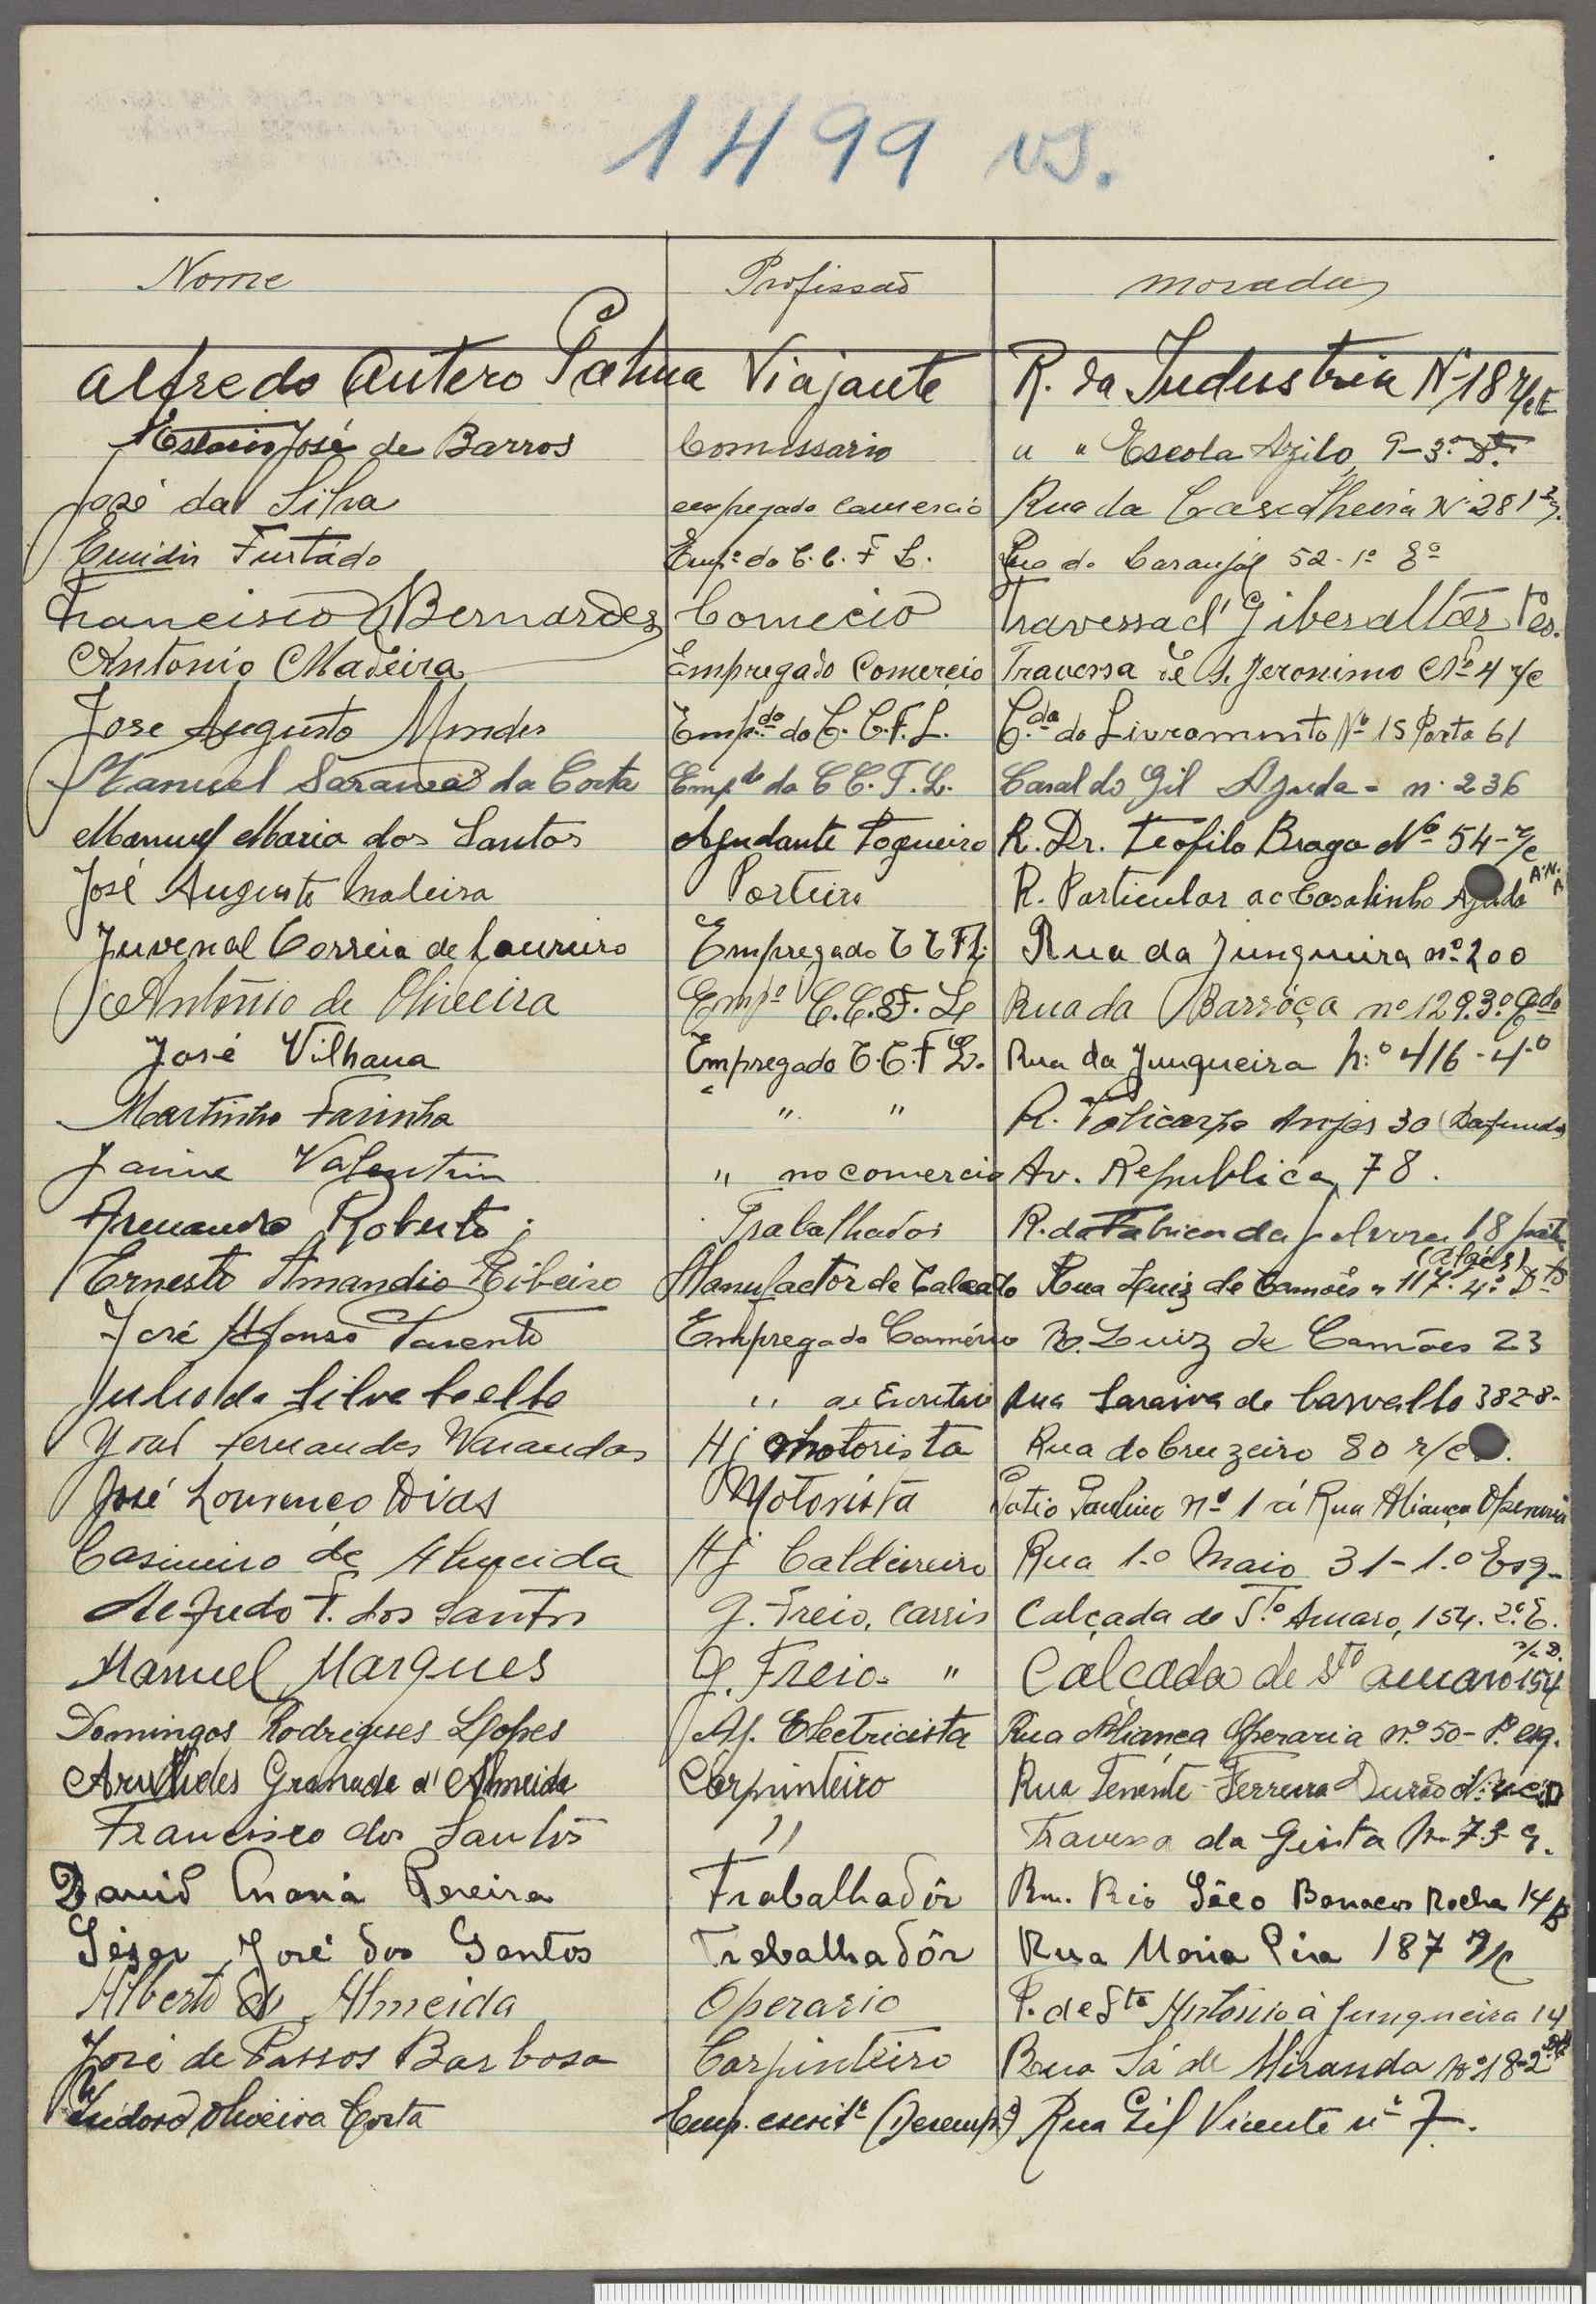 1499 vs.
Nome Profissão morada
Alfredo Antero Palma Viajante R. da Industria Nº 18 r/c E
José de Barros Comissario " " Escola Azilo, 9-3º Dt.
José da Silva empregado comercio Rua da Cascalheira Nº 28 1º
Emidio Furtado Empº da C. C. F. L. Rua do Laranjal 52-1º Eº
Francisco Bernardes Comecio Travessa d' Giberaltar
Antonio Madeira Empregado Comercio Travessa de S. Jeronimo Nº 4 r/c
Jose Augusto Mendes Emp.do da C. C. F. L. C.da do Livramento Nº 15 Porta 61
Manuel Saraiva da Costa Emp.do da C C. F. L. Casal do Gil Ajuda - nº 236
Manuel Maria dos Santos Ajudante Fogueiro R. Dr. Teofilo Braga Nº 54-r/c
José Augusto Madeira Porteiro R. Particular ao Casalinho Ajuda A.N. A
Juvenal Correia de Loureiro Empregado C C F L. Rua da Junqueira nº 200
Antonio de Oliveira Empº C. C. F. L. Rua da Barróca nº 129. 3º Eqdo
José Vilhana Empregado C. C. F. L. Rua da Junqueira n.º 416-4.º
Martinho Farinha " " R. Policarpo Anjos 30 (Dafundo)
Jaime Valentim " no comercio Av. Republica, 78.
Armando Roberto Trabalhador R. da Fabrica da 18
Ernesto Amandio Ribeiro Manufactor de Calcado Rua Luiz de Camões n 117-4º Dto (Algés)
José Afonso Parente Empregado Comércio R. Luiz de Camões 23
Julio da Silva Coelho " de Escritorio Rua Saraiva de Carvalho 382-8-
Fernandes Varandas Aj Motorista Rua do Cruzeiro 80 r/c
José Lourenço Dias Motorista Patio Paulino nº 1 á Rua Aliança Operaria
Casimiro de Almeida Aj Caldeireiro Rua 1.º Maio 31-1.º Esq-
Alfredo F. dos Santos G. Freio, Carris Calçada de Sto Amaro, 154. 2º E.
Manuel Marques G. Freio- " Calçada de Sto Amaro 154 r/c D.
Domingos Rodrigues Lopes Aj. Electricista Rua Aliança Operaria nº 50-1º esq.
Aristides Granada d'Almeida Carpinteiro Rua Tenente Ferreira Durão
Francisco dos Santos " Travessa da Giesta
David Maria Pereira Trabalhadôr Rua Rio Sêco Rocha 14 B
José dos Santos Trabalhadôr Rua Maria Pia 187 r/c
Alberto d' Almeida Operario P. de Sto Antonio á Junqueira 14
José de Passos Barbosa Carpinteiro Rua Sá de Miranda Nº 18-2º
Isidoro Oliveira Costa Emp. escritº (Desempº) Rua Gil Vicente nº 7.